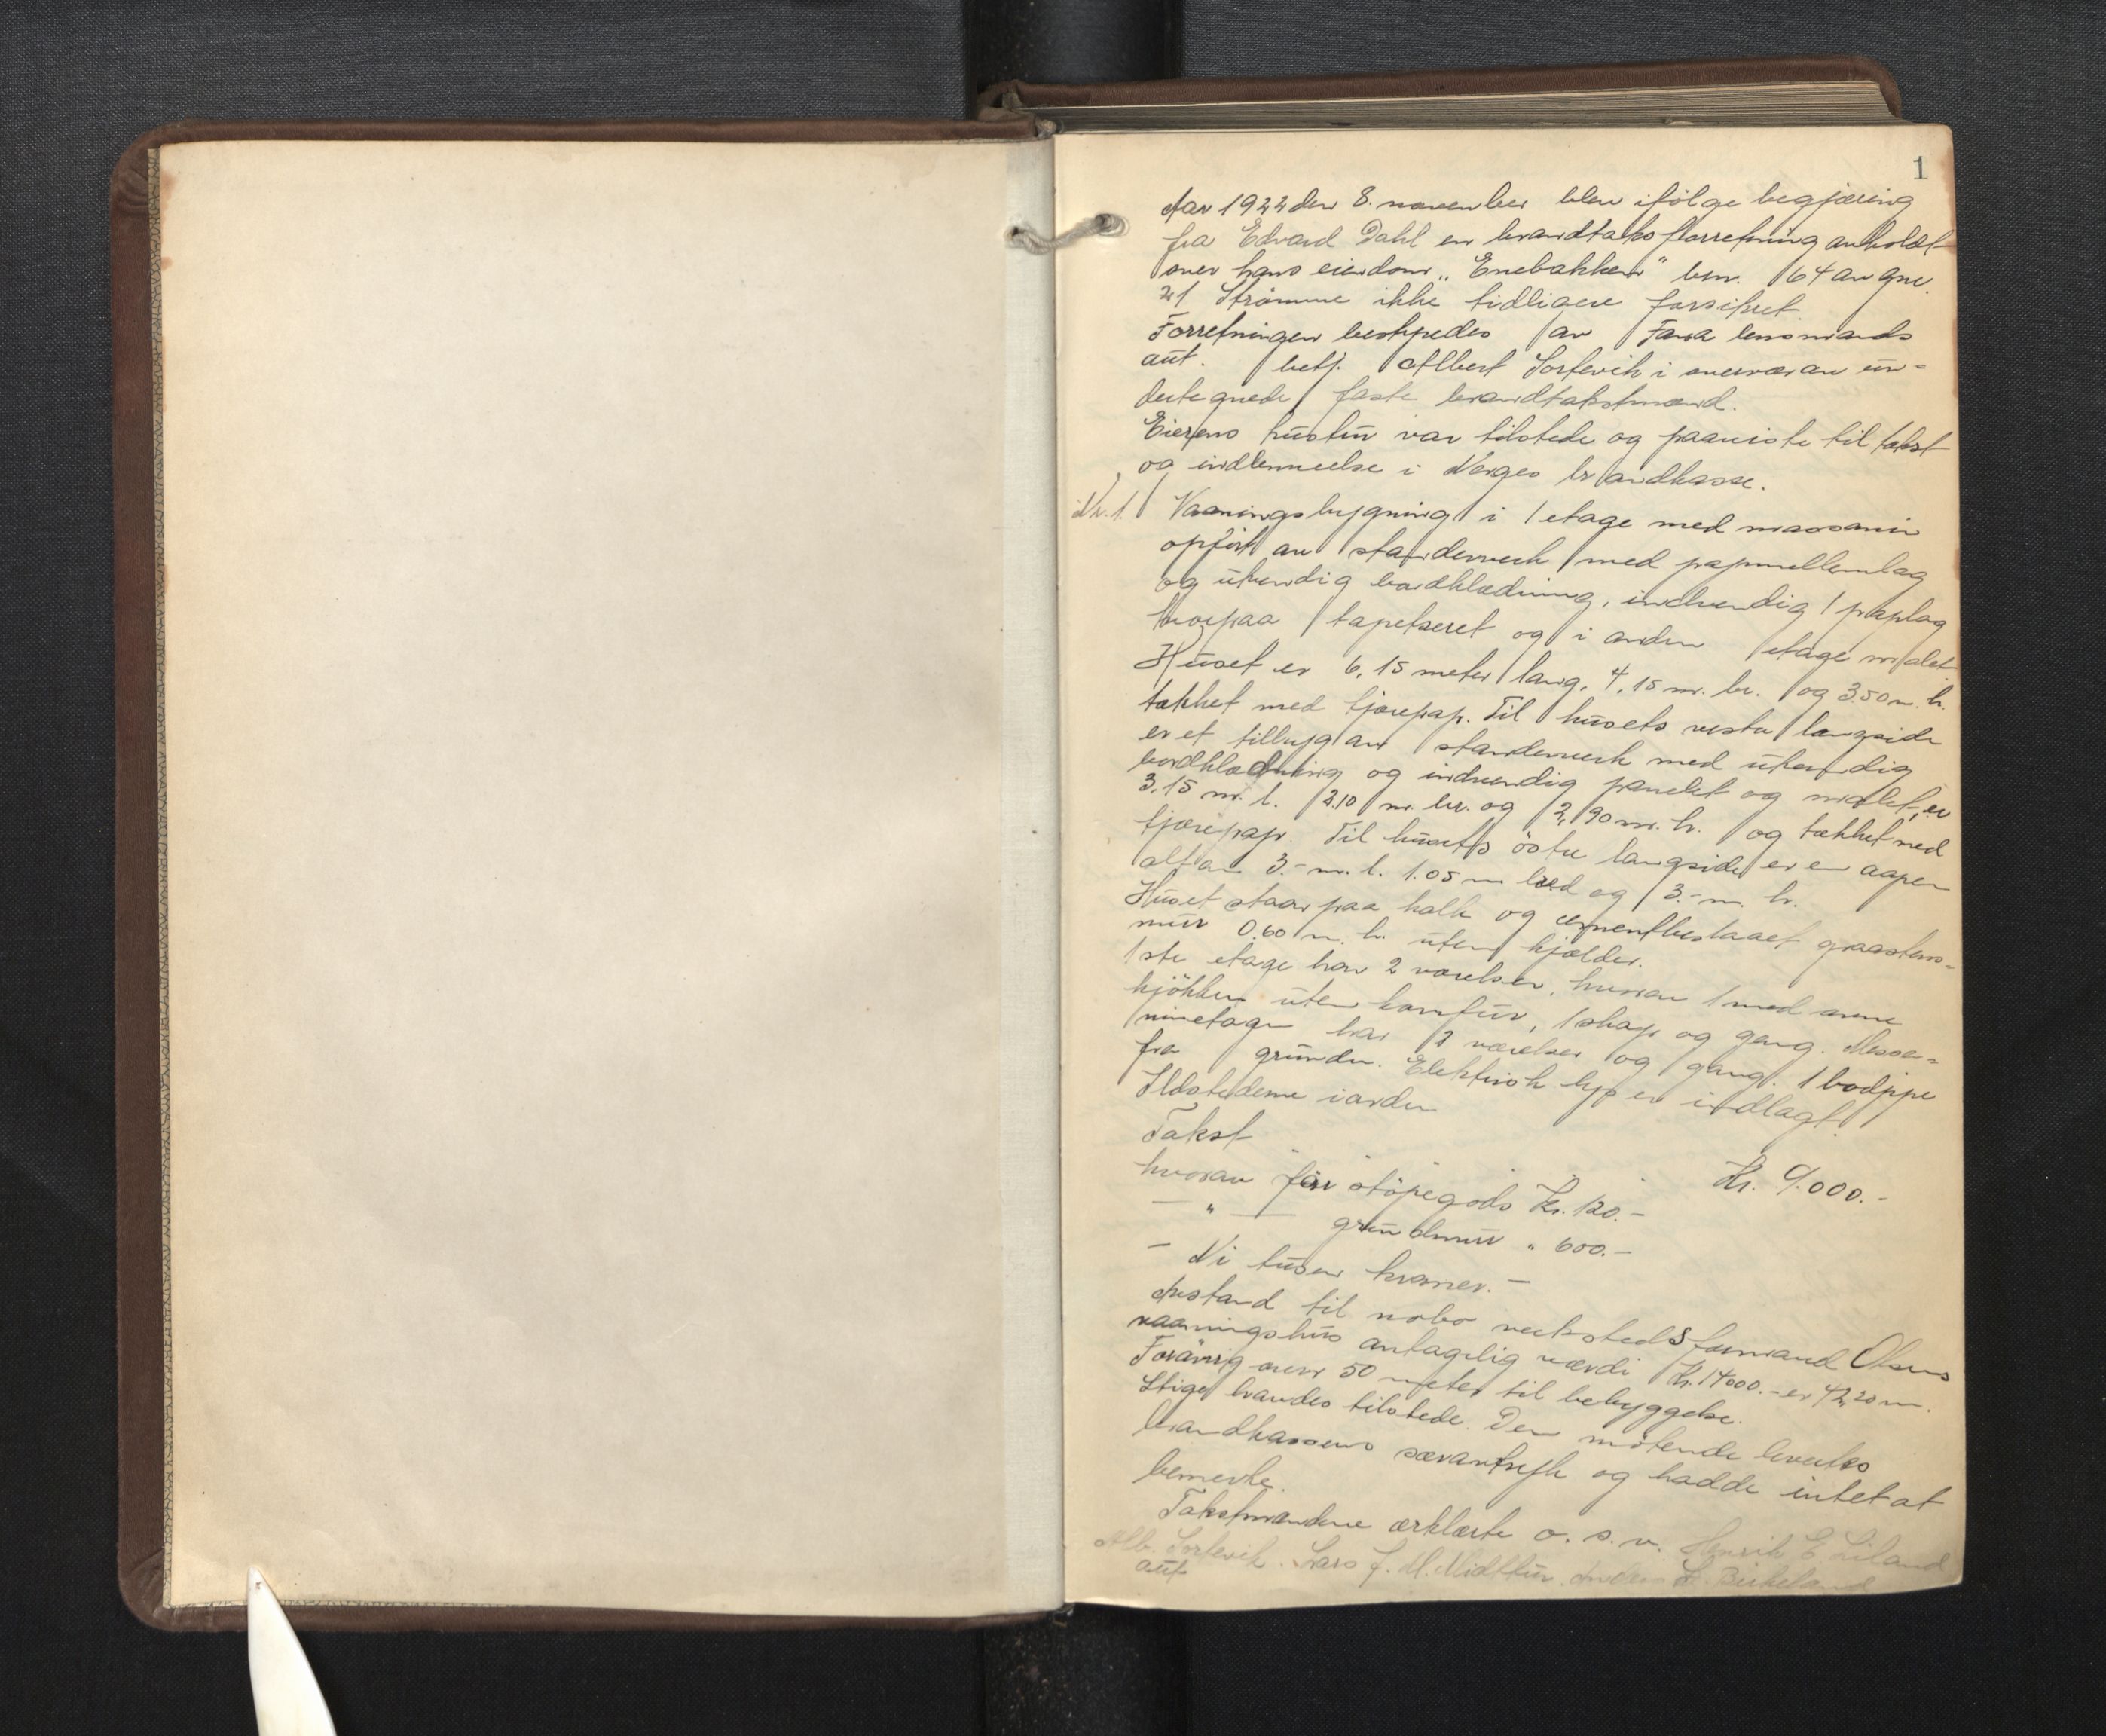 1
Aar 1922 den 8. november blev ifölge begjæring
fra Edvard Dahl en brandtakstforretning avholdt
over hans eiendom „Enebakken" bnr. 64 av gnr.
21 Strömme ikke tidligere forsikret.
Forretningen bestyredes av Fana lensmands
aut. betj. Albert Sortevik i overvær av un-
dertegnede faste brandtakstmænd.
Eierens hustru var tilstede og paaviste til takst
og indlemmelse i Norges brandkasse.
Nr. 1. Vaaningsbygning i 1 etage med massanin
opfört av standerverk med papmellemlag
og utvendig bordklædning, indvendig 1 paplag
hvorpaa tapetseret og i anden etage malet
Huset er 6,15 meter lang, 4,15 m. br. og 3.50 m. h.
tækket med tjærepap. Til husets vestre langside
er et tilbyg av standerverk med utvendig
bordklædning og indvendig panelet og malet, er
3,15 m. l. 2.10 m. br. og 2,90 m. h. og tækket med
tjærepap. Til husets östre langside er en aapen
altan 3.- m. l. 1.05 m bred og 3.- m. h.
Huset staar paa kalk og cementbeslaaet graastens-
mur 0.60 m. h. uten kjælder.
1ste etage har 2 værelser, hvorav 1 med ovn
kjökken uten komfur, 1 skap og gang. Messa-
ninetagen har 3 værelser og gang. 1 pipe
fra grunden. Elektrisk lys er indlagt.
Ildstederne i orden
Takst Kr. 9.000.-
hvorav for stöpegods Kr. 120.-
— " — grundmur " 600.-
— Ni tusen kroner. —
Avstand til nabo verkstedsformand Olsens
vaaningshus antagelig værdi Kr. 14000.- er 42,20 m.
Forövrig over 50 meter til bebyggelse.
Stige havdes tilstede. Den mötende levertes
brandkassens særavtryk og hadde intet at
bemerke.
Takstmændene erklærte o. s. v. Henrik E. Liland
Alb. Sortevik. Lars J. M. Midttun. Anders L. Birkeland
aut